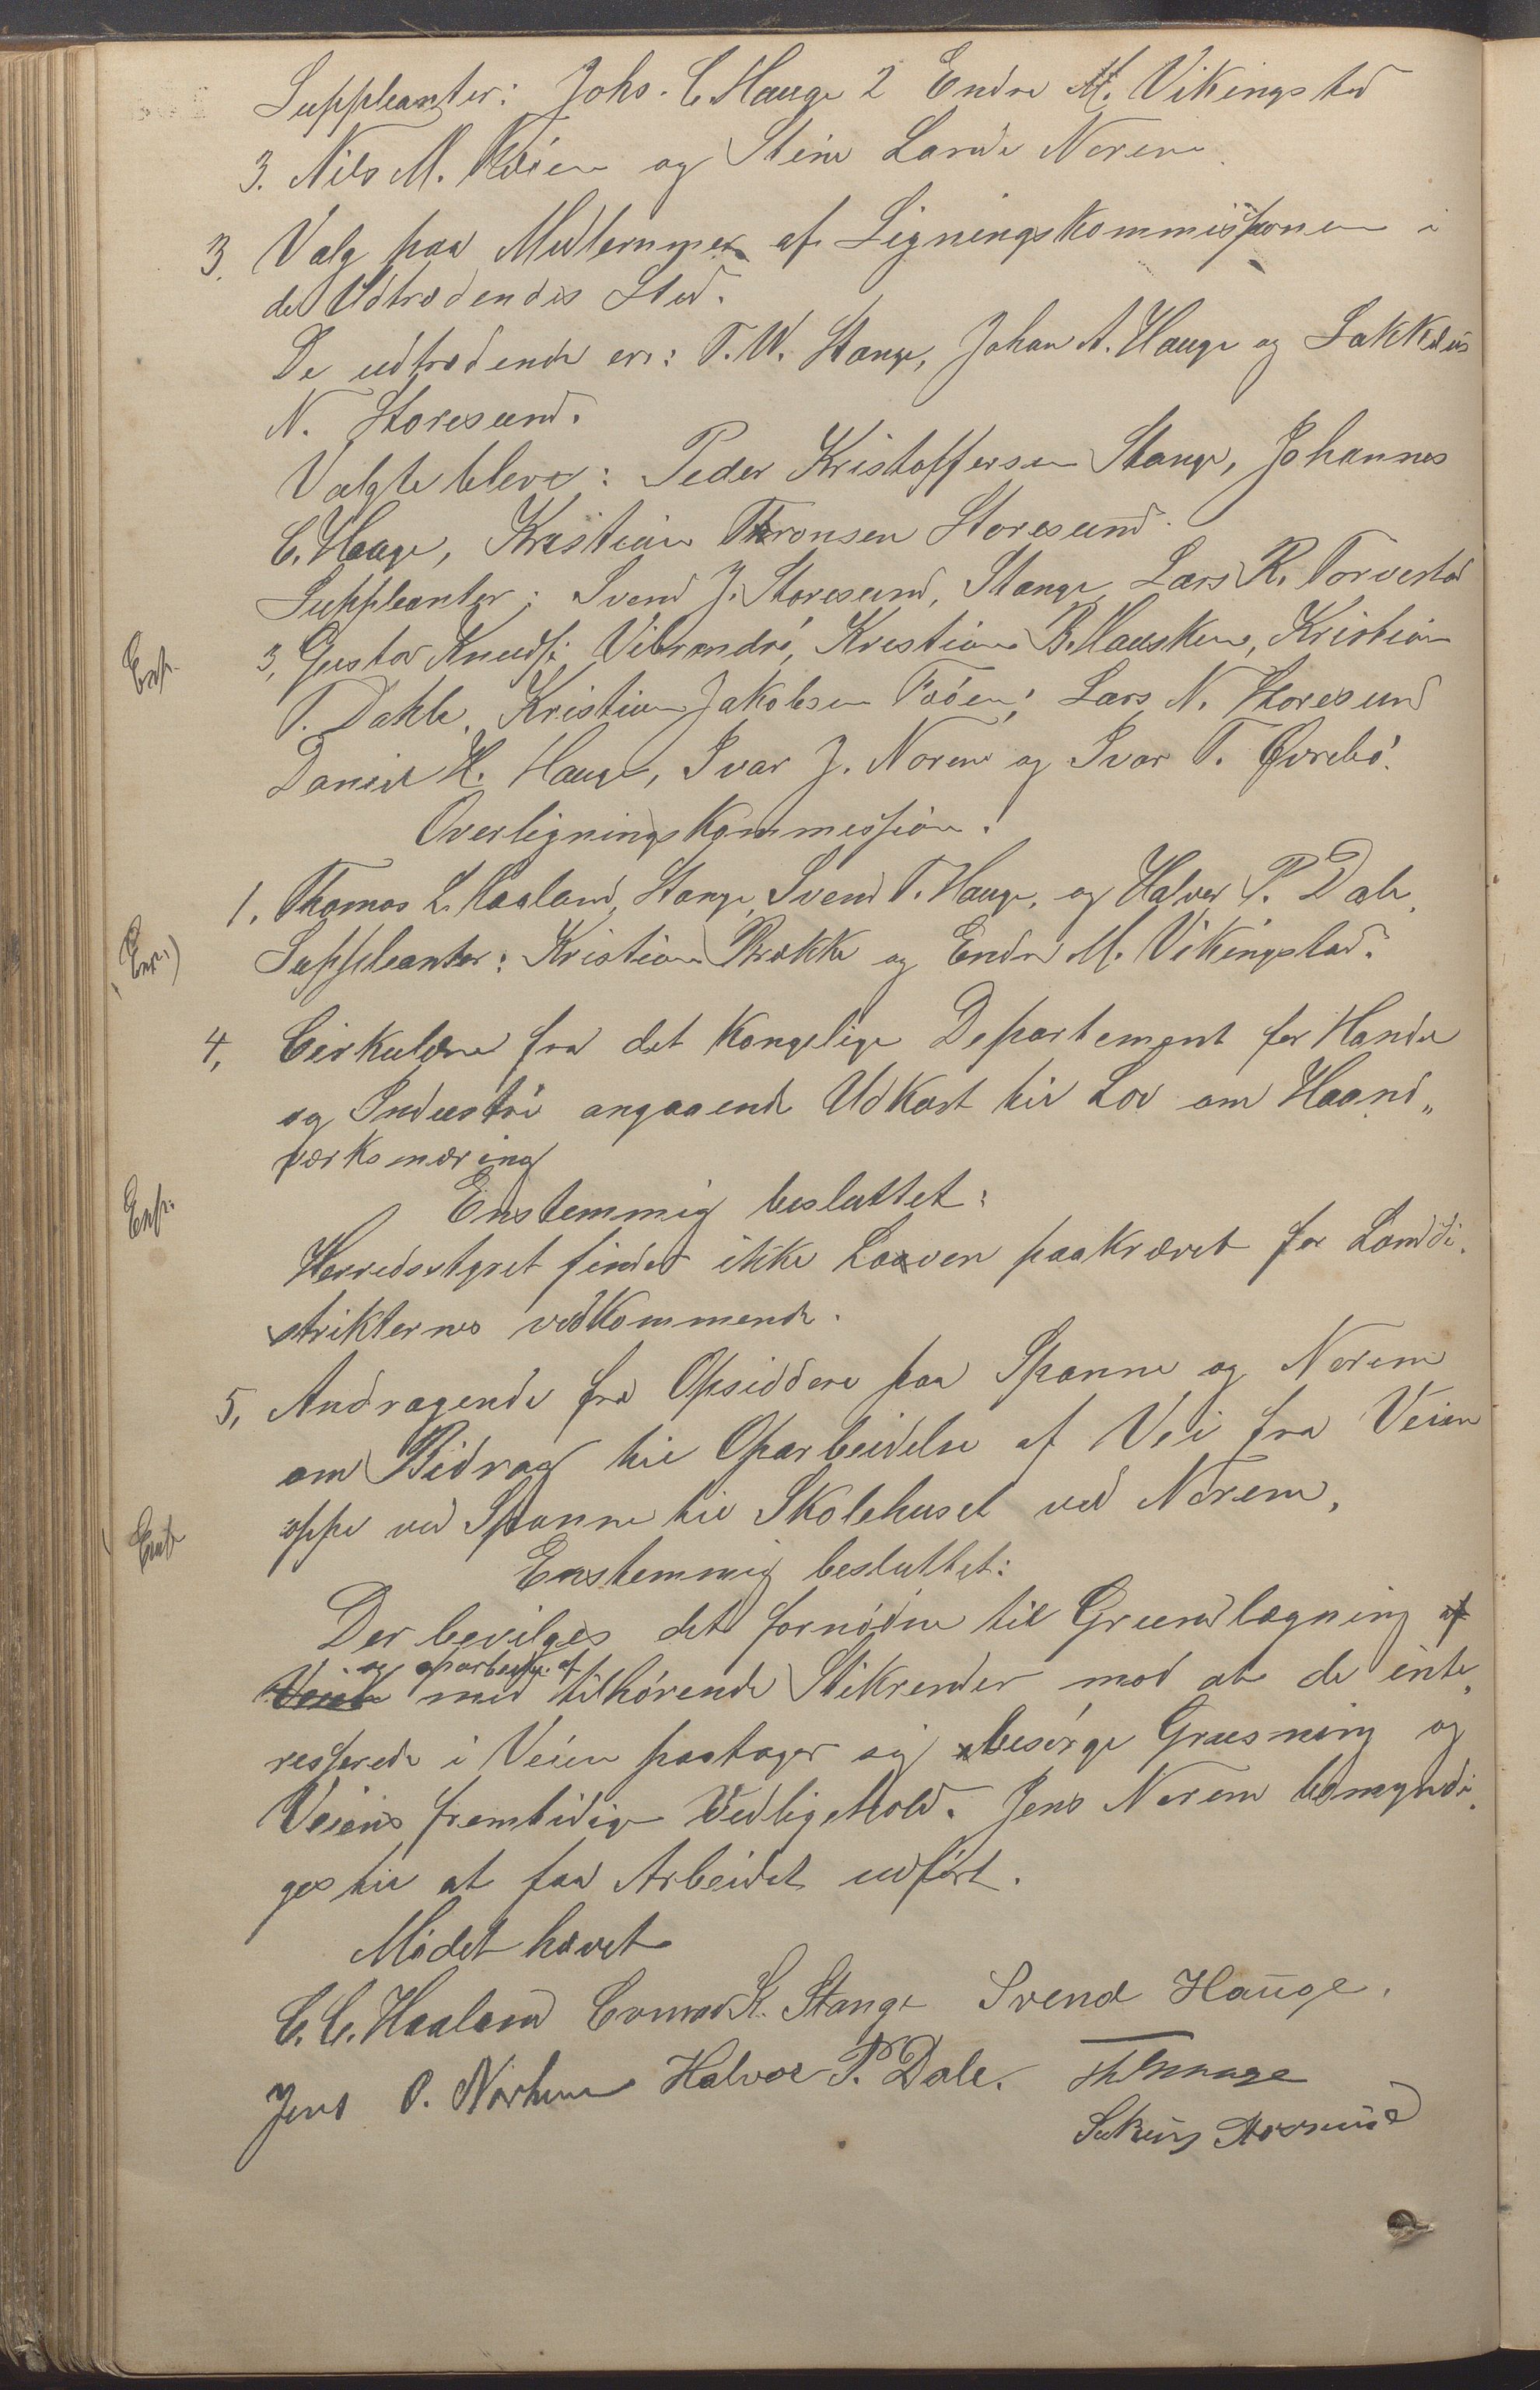 Suppleanter: Johs. C. Hauge 2 Endre M. Vikingstad
3. Nils M. og Stein Lande Norem
3. Valg paa Medlemmer af Ligningskommissionen i
de Udtrædendes Sted.
De udtrædende er: T. W. Stange, Johan A. Hauge og Sakkæus
N. Storesund.
Valgte bleve: Peder Kristoffersen Stange, Johannes
C. Hauge, Kristian Thronsen Storesund.
Suppleanter: Svend J. Storesund, Stange, Lars R. Torvestad
3, Gustav Knuds. Vibrandsö, Kristian B. Hausken, Kristian
T. Dahle, Kristian Jakobsen Fööen, Lars N. Storesund
Daniel H. Hauge, Ivar J. Norem og Ivar T. Øvrebö.
Overligningskommission:
1, Thomas L. Haaland, Stange, Svend T. Hauge, og Halvor P. Dale.
Suppleanter: Kristian Brekke og Endre M. Vikingstad.
4, Cirkulære fra det Kongelige Departement for Handel
og Industri angaaende Udkast til Lov om Haand„
værksnæring
Enstemmig besluttet:
Herredsstyret finder ikke Loven paakrævet for Landdi„
strikternes vedkommende.
5, Andragende fra Opsiddere paa Spanne og Norem
om Bidrag til Oparbeidelse af Vei fra Veien
oppe ved Spanne til Skolehuset ved Norem,
Enstemmig besluttet:
Der bevilges det fornödne til Grundlægning af
og oparbeidelse af
Veien med tilhörende Stikrender mod at de inte„
resserede i Veien paatager sig besörge Grusning og
Veiens fremtidige Vedligehold. Jens Norem bemyndi„
ges til at faa Arbeidet udfört.
Mödet hævet
C. C. Haaland Conrad K. Stange Svend Hauge.
Jens O. Norhem Halvor P. Dale.
Exp.
Exp.
Exp.
Exp.